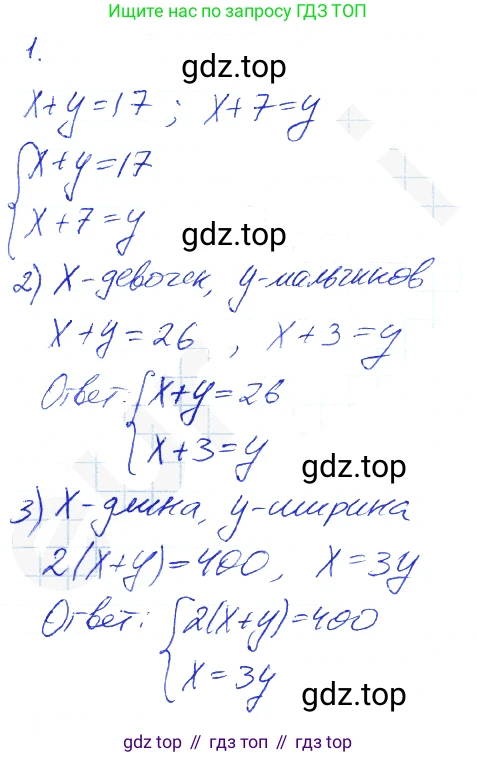 Ищите нас в поиске по запросу ГДЗ ТОП
1.
gdz.top
x+y=17 ; x+7=y
{x+y=17
x+7=y
gdz.top
2) x-девочек, y-мальчиков
x+y=26 , x+3=y
Ответ: {x+y=26
x+3=y
gdz.top
3) x-длина, y-ширина
2(x+y)=400, x=3y
Ответ: {2(x+y)=400
x=3y
gdz.top
gdz.top // гдз топ // гдз.топ